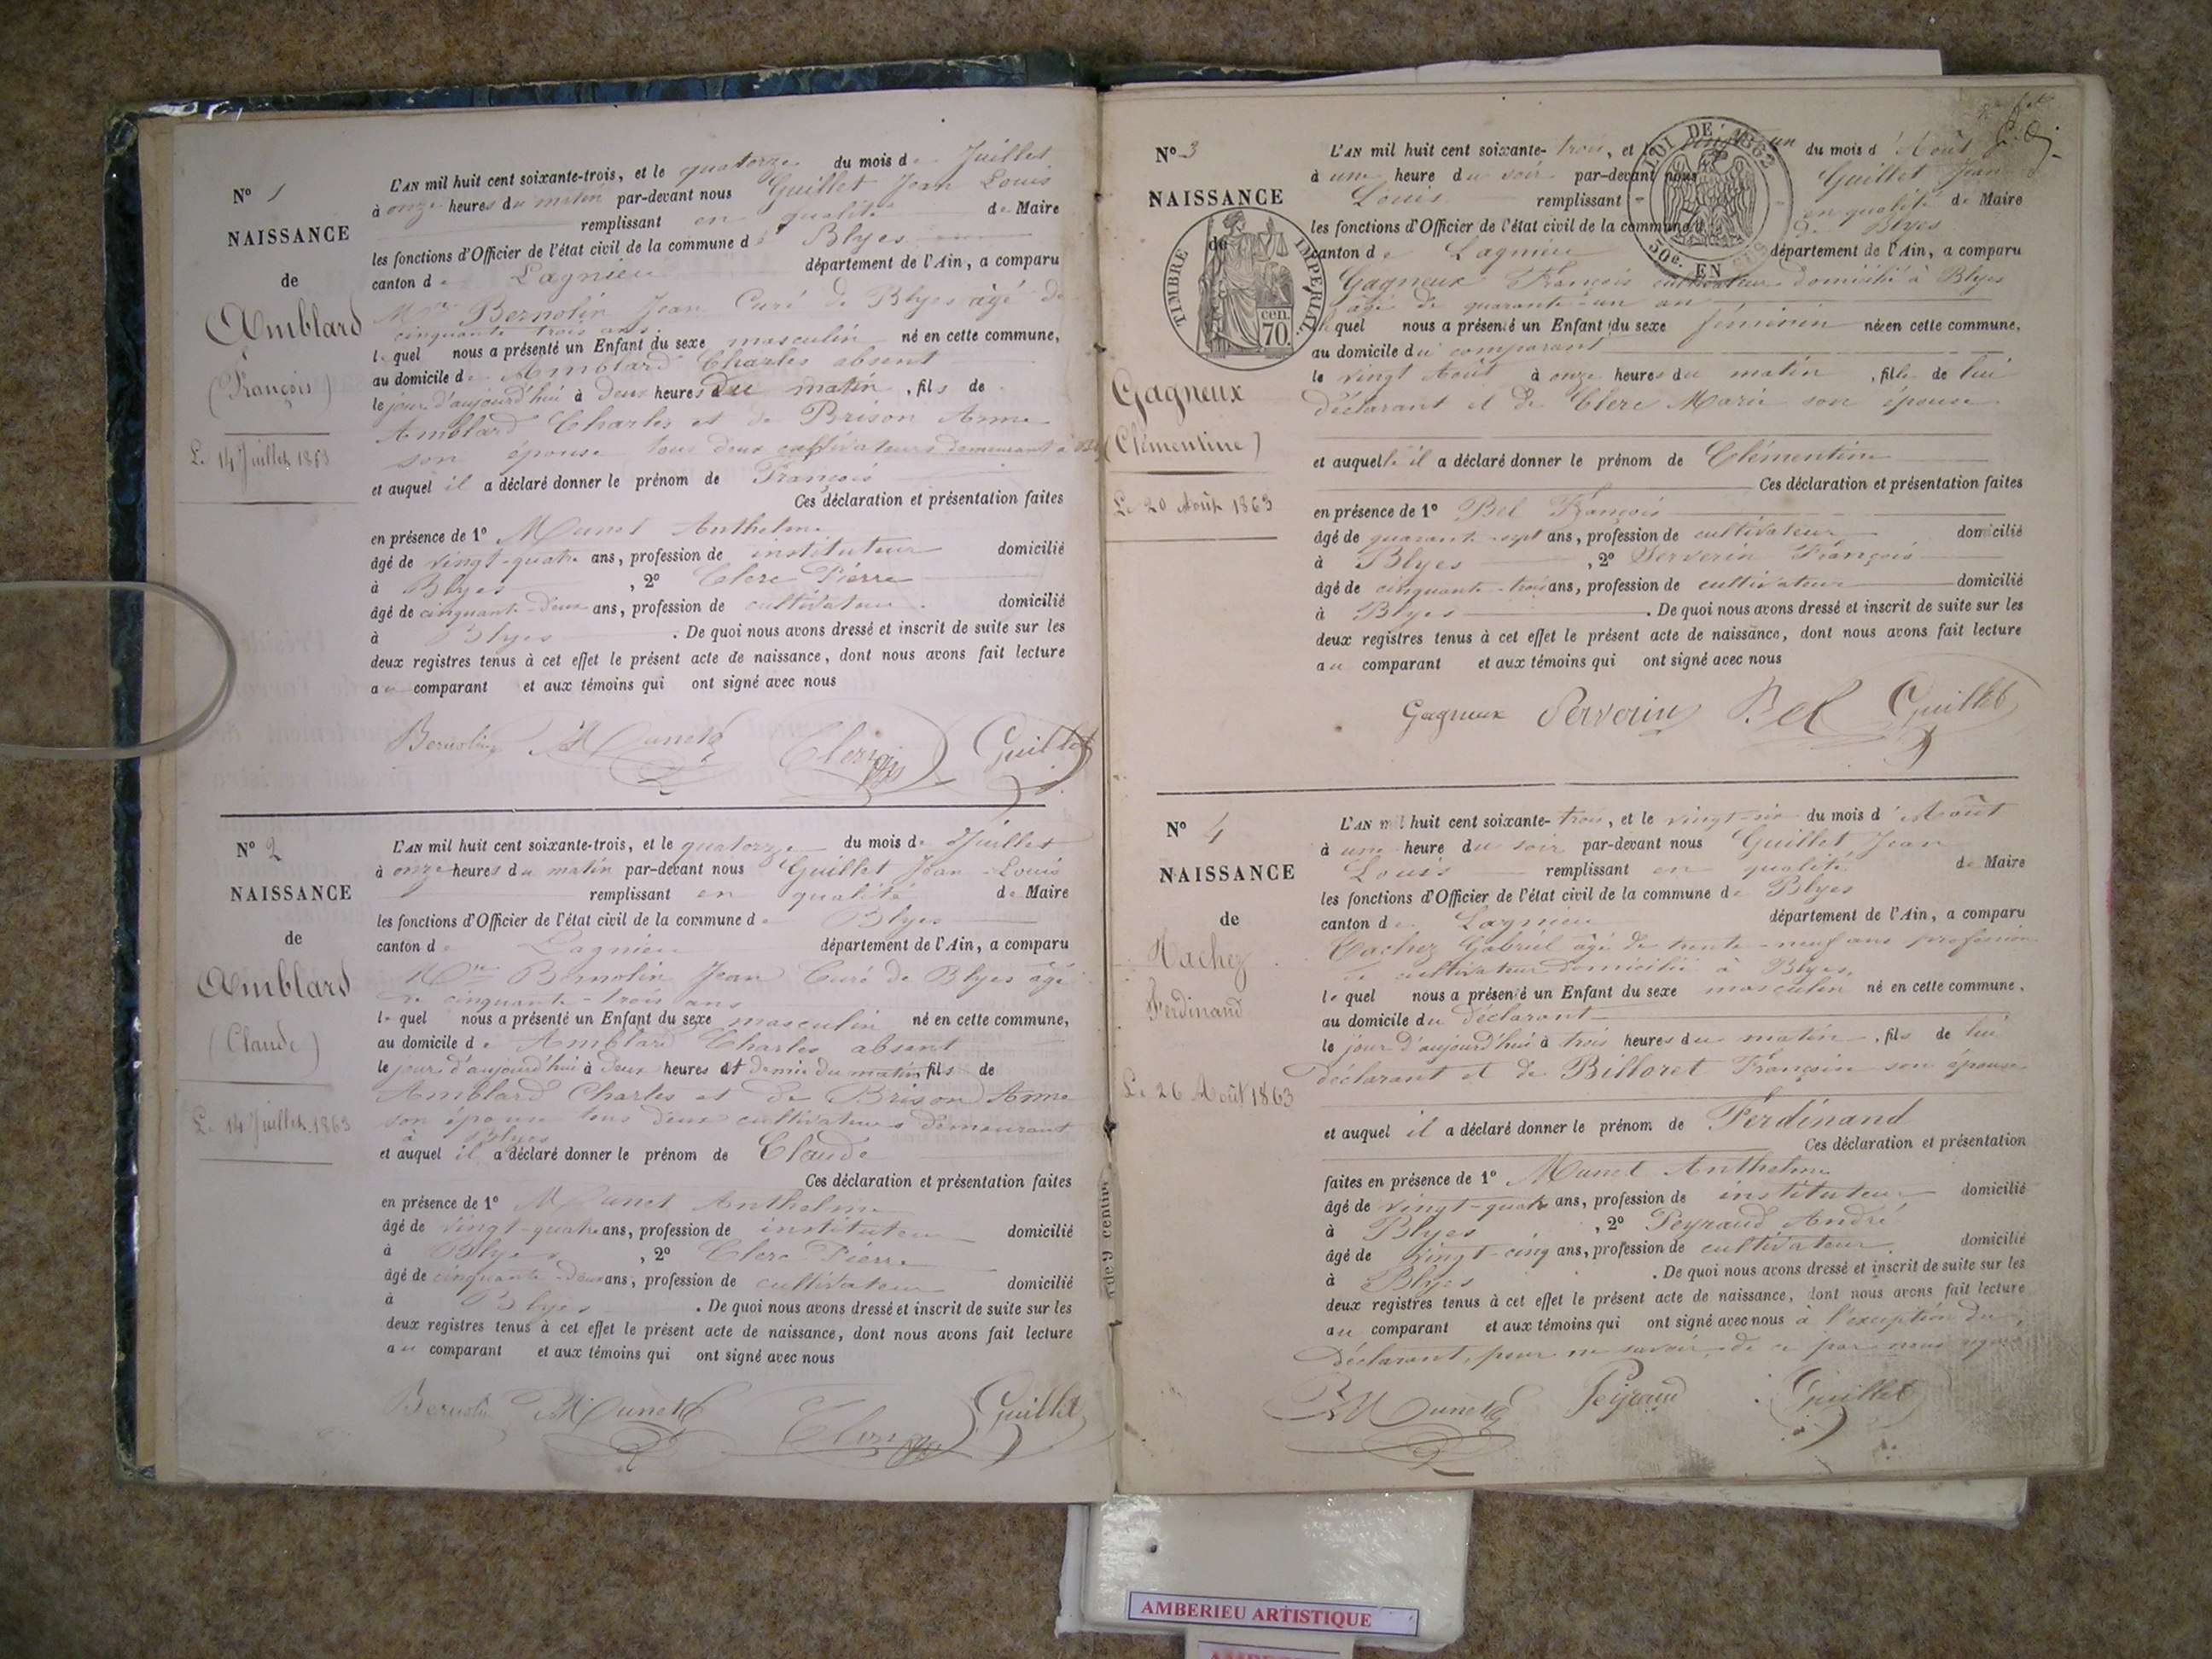 N° 1
NAISSANCE
de
Amblard
(François)
Le 14 Juillet 1863
L'AN mil huit cent soixante-trois, et le quatorze du mois de Juillet
à onze heures du matin par-devant nous Guillet Jean Louis
remplissant en qualité de Maire
les fonctions d'Officier de l'état civil de la commune de Blyes
canton de Lagnieu département de l'Ain, a comparu
Bernolin Jean Curé de Blyes âgé de
cinquante trois ans
lequel nous a présenté un Enfant du sexe masculin né en cette commune,
au domicile de Amblard Charles absent
le jour d'aujourd'hui à Deux heures du matin, fils de
Amblard Charles et de Brison Anne
son épouse tous deux cultivateurs demeurant à
et auquel il a déclaré donner le prénom de François
Ces déclaration et présentation faites
en présence de 1° Munet Anthelme
âgé de vingt-quatre ans, profession de instituteur domicilié
à Blyes, 2° Clerc Pierre
âgé de cinquante-deux ans, profession de cultivateur domicilié
à Blyes. De quoi nous avons dressé et inscrit de suite sur les
deux registres tenus à cet effet le présent acte de naissance, dont nous avons fait lecture
au comparant et aux témoins qui ont signé avec nous
Bernolin Munet Clerc Guillet
N° 2
NAISSANCE
de
Amblard
(Claude)
Le 14 Juillet 1863
L'AN mil huit cent soixante-trois, et le quatorze du mois de Juillet
à onze heures du matin par-devant nous Guillet Jean-Louis
remplissant en qualité de Maire
les fonctions d'Officier de l'état civil de la commune de Blyes
canton de Lagnieu département de l'Ain, a comparu
Bernolin Jean Curé de Blyes âgé
de cinquante-trois ans
lequel nous a présenté un Enfant du sexe masculin né en cette commune,
au domicile de Amblard Charles absent
le jour d'aujourd'hui à Deux heures et demie du matin fils de
Amblard Charles et de Brison Anne
son épouse tous deux cultivateurs demeurant
à Blyes
et auquel il a déclaré donner le prénom de Claude
Ces déclaration et présentation faites
en présence de 1° Munet Anthelme
âgé de vingt-quatre ans, profession de instituteur domicilié
à Blyes, 2° Clerc Pierre
âgé de cinquante-deux ans, profession de cultivateur domicilié
à Blyes. De quoi nous avons dressé et inscrit de suite sur les
deux registres tenus à cet effet le présent acte de naissance, dont nous avons fait lecture
au comparant et aux témoins qui ont signé avec nous
Bernolin Munet Clerc Guillet
N° 3
NAISSANCE
de
TIMBRE IMPERIAL
70 cen.
LOI DE 1862
50c. EN SUS
Gagneux
(Clémentine)
Le 20 Août 1863
L'AN mil huit cent soixante-trois, et le vingt un du mois d'Août
à une heure du soir par-devant nous Guillet Jean
Louis remplissant en qualité de Maire
les fonctions d'Officier de l'état civil de la commune de Blyes
canton de Lagnieu département de l'Ain, a comparu
Gagneux François cultivateur domicilié à Blyes
âgé de quarante-un an
lequel nous a présenté un Enfant du sexe féminin née en cette commune,
au domicile du comparant
le vingt Août à onze heures du matin, fille de lui
déclarant et de Clerc Marie son épouse
et auquelle il a déclaré donner le prénom de Clémentine
Ces déclaration et présentation faites
en présence de 1° Bel François
âgé de quarante-sept ans, profession de cultivateur domicilié
à Blyes, 2° Serverin François
âgé de cinquante-trois ans, profession de cultivateur domicilié
à Blyes. De quoi nous avons dressé et inscrit de suite sur les
deux registres tenus à cet effet le présent acte de naissance, dont nous avons fait lecture
au comparant et aux témoins qui ont signé avec nous
Gagneux Serverin Bel Guillet
N° 4
NAISSANCE
de
Cachez
Ferdinand
Le 26 Août 1863
L'AN mil huit cent soixante-trois, et le vingt-six du mois d'Août
à une heure du soir par-devant nous Guillet Jean
Louis remplissant en qualité de Maire
les fonctions d'Officier de l'état civil de la commune de Blyes
canton de Lagnieu département de l'Ain, a comparu
Cachez Gabriel âgé de trente-neuf ans profession
de cultivateur domicilié à Blyes
lequel nous a présenté un Enfant du sexe masculin né en cette commune,
au domicile du déclarant
le jour d'aujourd'hui à trois heures du matin, fils de lui
déclarant et de Billoret Françoise son épouse
et auquel il a déclaré donner le prénom de Ferdinand
Ces déclaration et présentation
faites en présence de 1° Munet Anthelme
âgé de vingt-quatre ans, profession de instituteur domicilié
à Blyes, 2° Peyraud André
âgé de vingt-cinq ans, profession de cultivateur domicilié
à Blyes. De quoi nous avons dressé et inscrit de suite sur les
deux registres tenus à cet effet le présent acte de naissance, dont nous avons fait lecture
au comparant et aux témoins qui ont signé avec nous à l'exception du
déclarant, pour ne savoir, de ce par nous
Munet Peyraud Guillet
AMBERIEU ARTISTIQUE